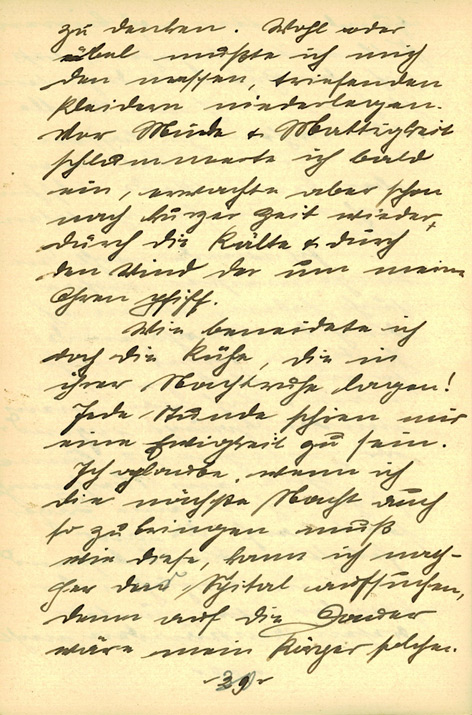 zu denken. Wohl oder
übel mußte ich mich
den nassen, triefenden
Kleidern niederlegen.
Vor Müde & Mattigkeit
schlummerte ich bald
ein, erwachte aber schon
nach kurzer Zeit wieder
durch die Kälte & durch
den Wind der um meine
Ohren pfiff.
Wie beneidete ich
doch die Kühe, die in
ihrer Nachtruhe lagen!
Jede Stunde schien mir
eine Ewigkeit zu sein.
Ich glaube, wenn ich
die nächste Nacht auch
so zubringen muß
wie diese, kann ich nach-
her den Spital aufsuchen,
denn auf die Dauer
wäre mein Körper solchen
- 39 -